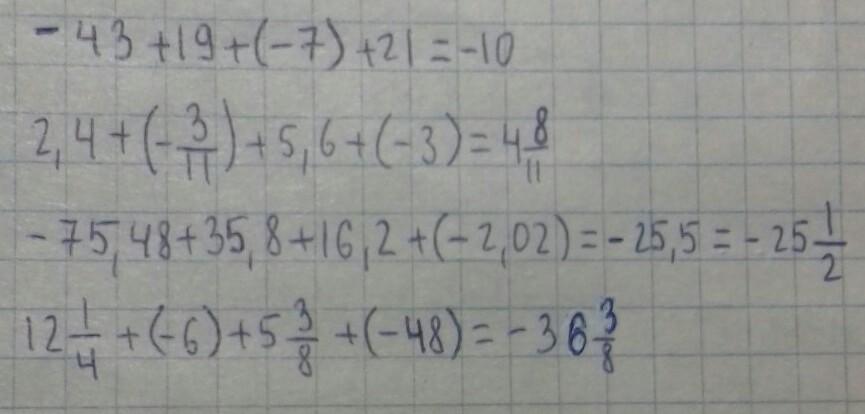 -43+19+(-7)+21=-10
2,4+(-3/11)+5,6+(-3)=4 8/11
-75,48+35,8+16,2+(-2,02)=-25,5=-25 1/2
12 1/4+(-6)+5 3/8+(-48)=-36 3/8